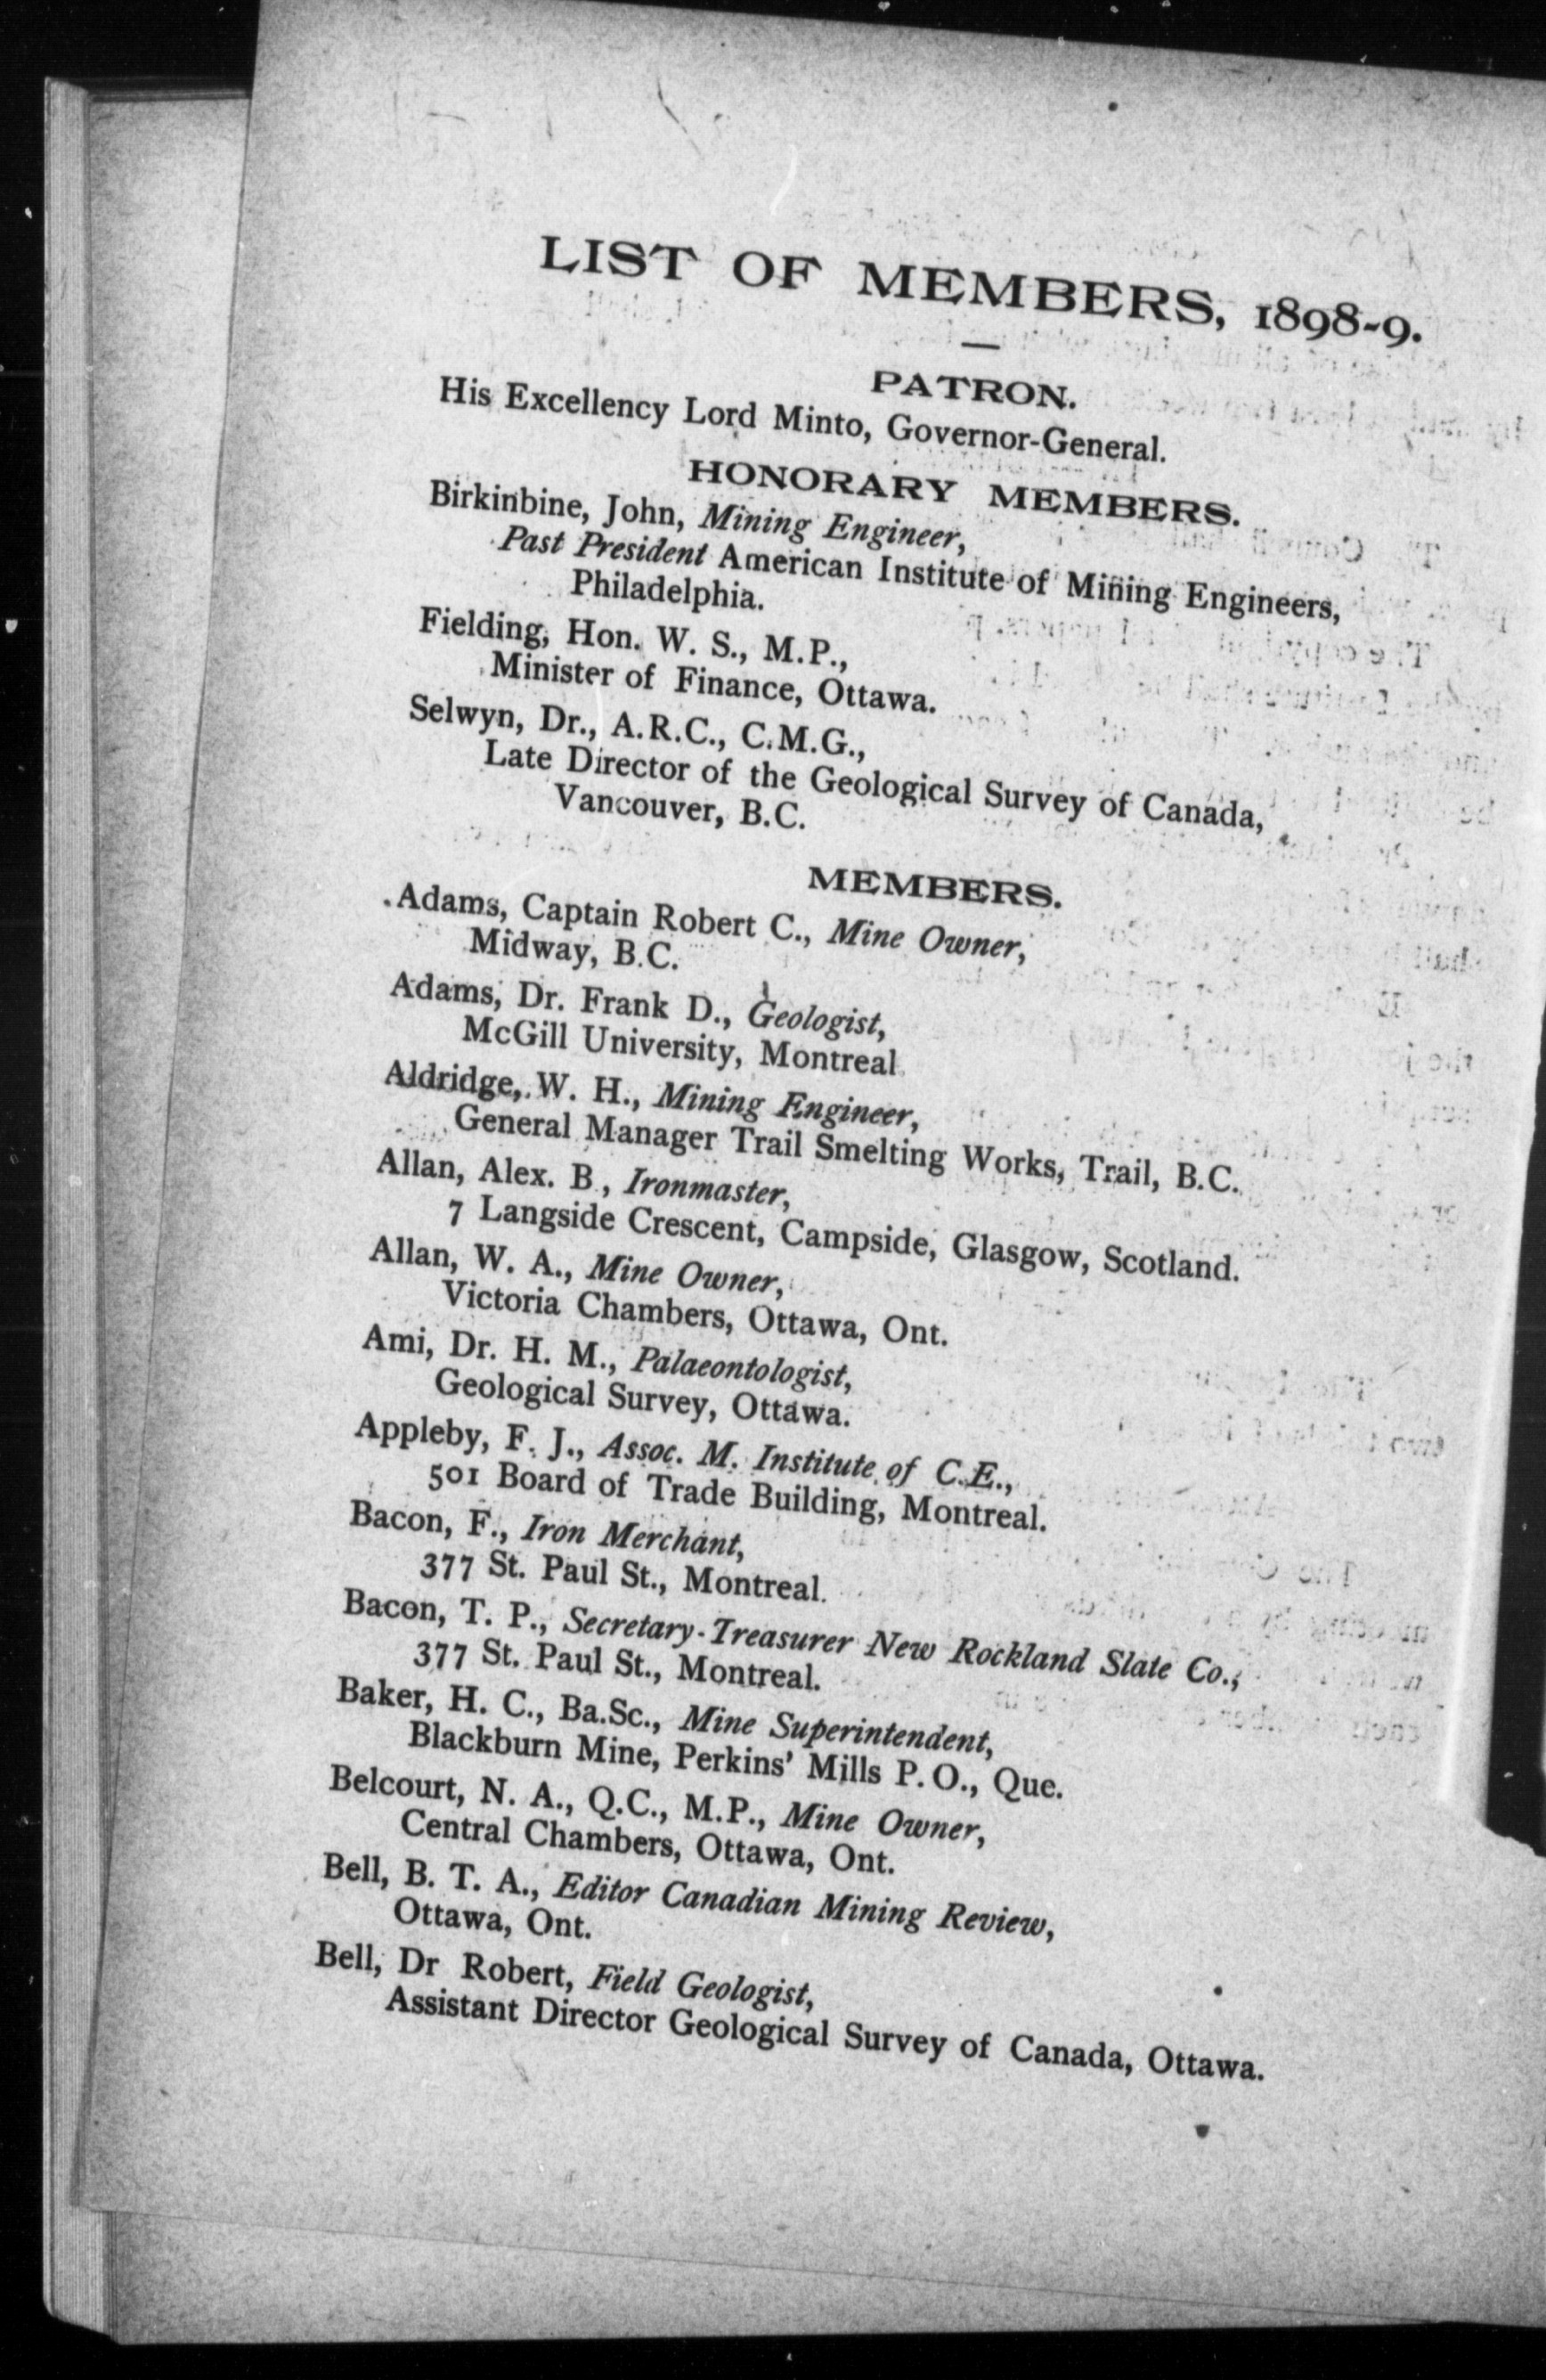 LIST OF MEMBERS, 1898-9.
PATRON.
His Excellency Lord Minto, Governor-General.
HONORARY MEMBERS.
Birkinbine, John, Mining Engineer,
Past President American Institute of Mining Engineers,
Philadelphia.
Fielding, Hon. W. S., M.P.,
Minister of Finance, Ottawa.
Selwyn, Dr., A.R.C., C.M.G.,
Late Director of the Geological Survey of Canada,
Vancouver, B.C.
MEMBERS.
Adams, Captain Robert C., Mine Owner,
Midway, B.C.
Adams, Dr. Frank D., Geologist,
McGill University, Montreal
Aldridge, W. H., Mining Engineer,
General Manager Trail Smelting Works, Trail, B.C.
Allan, Alex. B., Ironmaster,
7 Langside Crescent, Campside, Glasgow, Scotland.
Allan, W. A., Mine Owner,
Victoria Chambers, Ottawa, Ont.
Ami, Dr. H. M., Palaeontologist,
Geological Survey, Ottawa.
Appleby, F. J., Assoc. M. Institute of C.E.,
501 Board of Trade Building, Montreal.
Bacon, F., Iron Merchant,
377 St. Paul St., Montreal.
Bacon, T. P., Secretary-Treasurer New Rockland Slate Co.,
377 St. Paul St., Montreal.
Baker, H. C., Ba.Sc., Mine Superintendent,
Blackburn Mine, Perkins' Mills P.O., Que.
Belcourt, N. A., Q.C., M.P., Mine Owner,
Central Chambers, Ottawa, Ont.
Bell, B. T. A., Editor Canadian Mining Review,
Ottawa, Ont.
Bell, Dr Robert, Field Geologist,
Assistant Director Geological Survey of Canada, Ottawa.